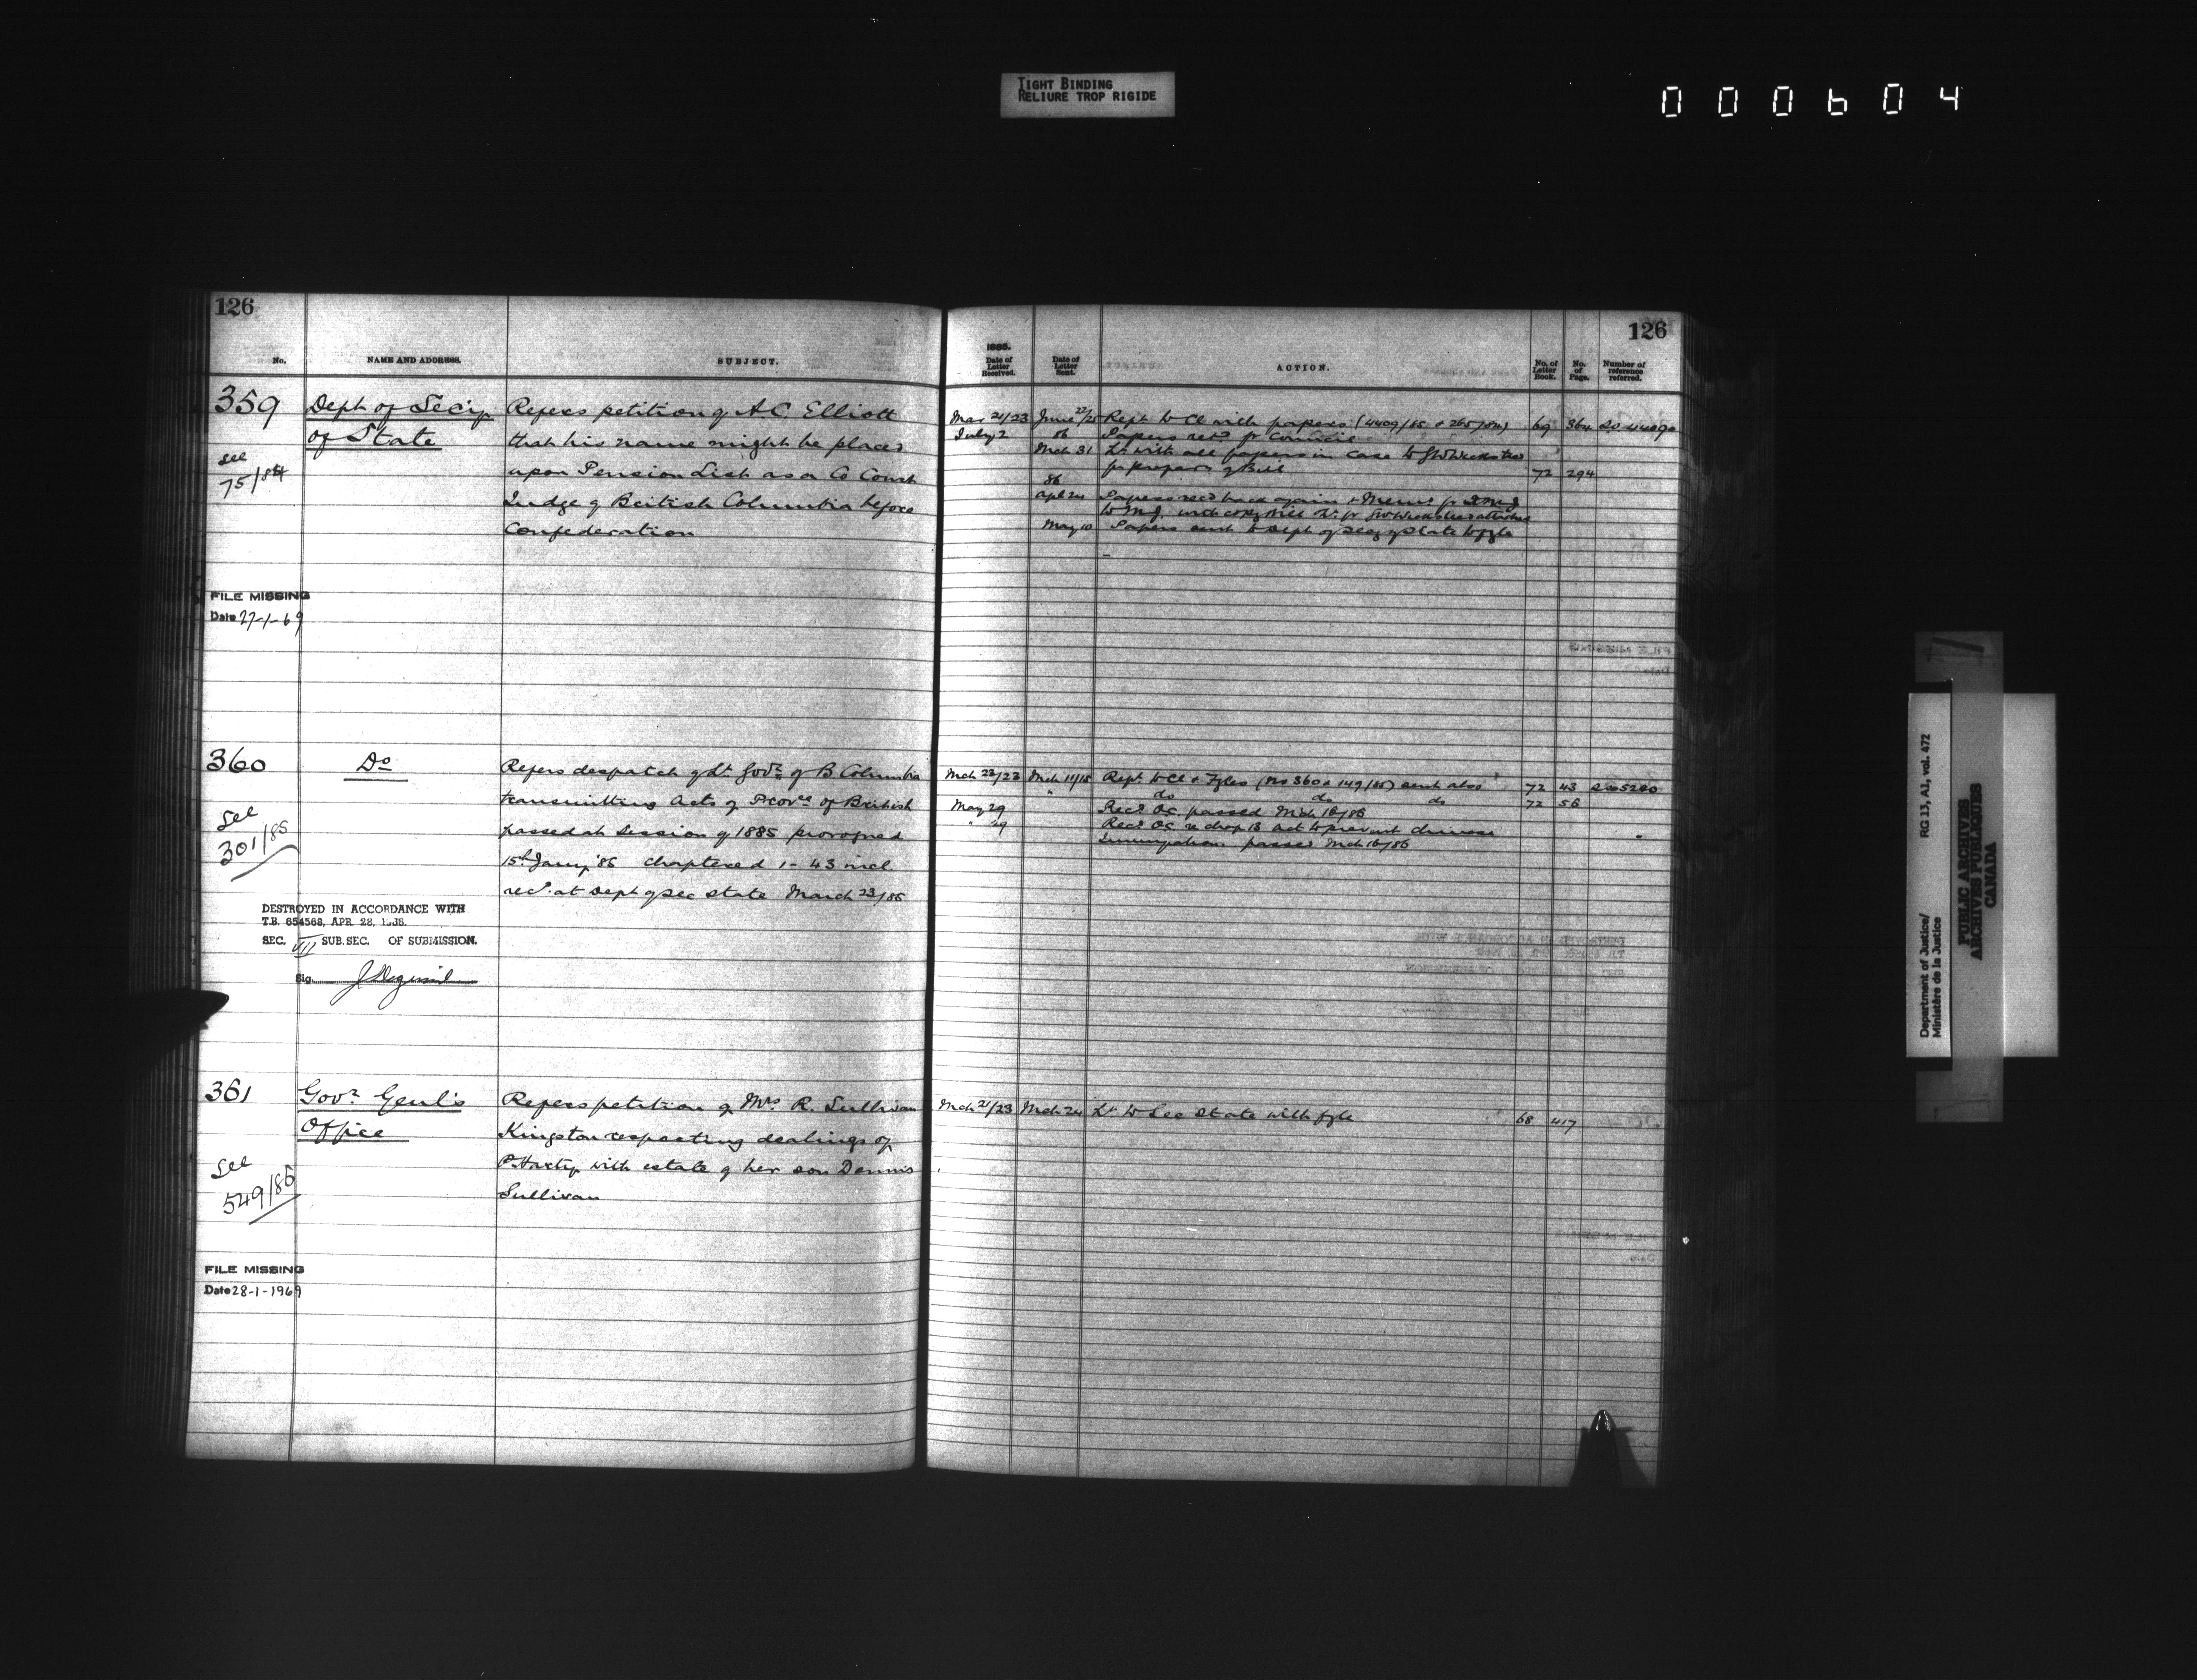 TIGHT BINDING
RELIURE TROP RIGIDE
000604
126
No. NAME AND ADDRESS. SUBJECT.
359 Dept of Sec'y Refers petition of A.C. Elliott
of State that his name might be placed
see upon Pension List as a Co Court
75/84 Judge of British Columbia before
Confederation
FILE MISSING
Date 27-1-69
360 Do Refers despatch of Lt Govr of B Columbia
transmitting Acts of Provce of British
see passed at Session of 1885 prorogued
301/85 15th Jany '86 chaptered 1-43 incl
recd. at Dept of Sec State March 23/85
DESTROYED IN ACCORDANCE WITH
T.B. 654568, APR. 28,
SEC. VII SUB. SEC. OF SUBMISSION.
Sig.
361 Govr Genl's Refers petition of Mrs R. Sullivan
Office Kingston respecting dealings of
see P. Hartiy with estate of her son Dennis
549/85 Sullivan
FILE MISSING
Date 28-1-1969
126
1885.
Date of Letter Received. Date of Letter Sent. ACTION. No. of Letter Book. No. of Page. Number of reference referred.
Mar 21/23 June 22/25 Rept to Cl with papers (4409/85 + 265/84) 69 364
July 2 86 Papers retd fr Council
Mch 31 Lr with all papers in case to
for prepar of Bill 72 294
86
Apl 24 Papers recd back again + Memo fr DMJ
to M.J. with copy Bill Lr fr
May 10 Papers sent to Dept of Secy of State to fyle
Mch 23/23 Mch 11/15 Rept to Cl + Fyles (nos 360 & 149/85) sent also 72 43 5280
" do do do 72 56
May 29 Recd OC passed Mch 16/86
" 29 Recd OC re chap 13 Act to prevent chinese
Immigration passed Mch 16/86
Mch 21/23 Mch 24 Lr to Sec State with fyle 68 417
Department of Justice/ RG 13, A1, vol. 472
Ministère de la Justice
PUBLIC ARCHIVES
ARCHIVES PUBLIQUES
CANADA